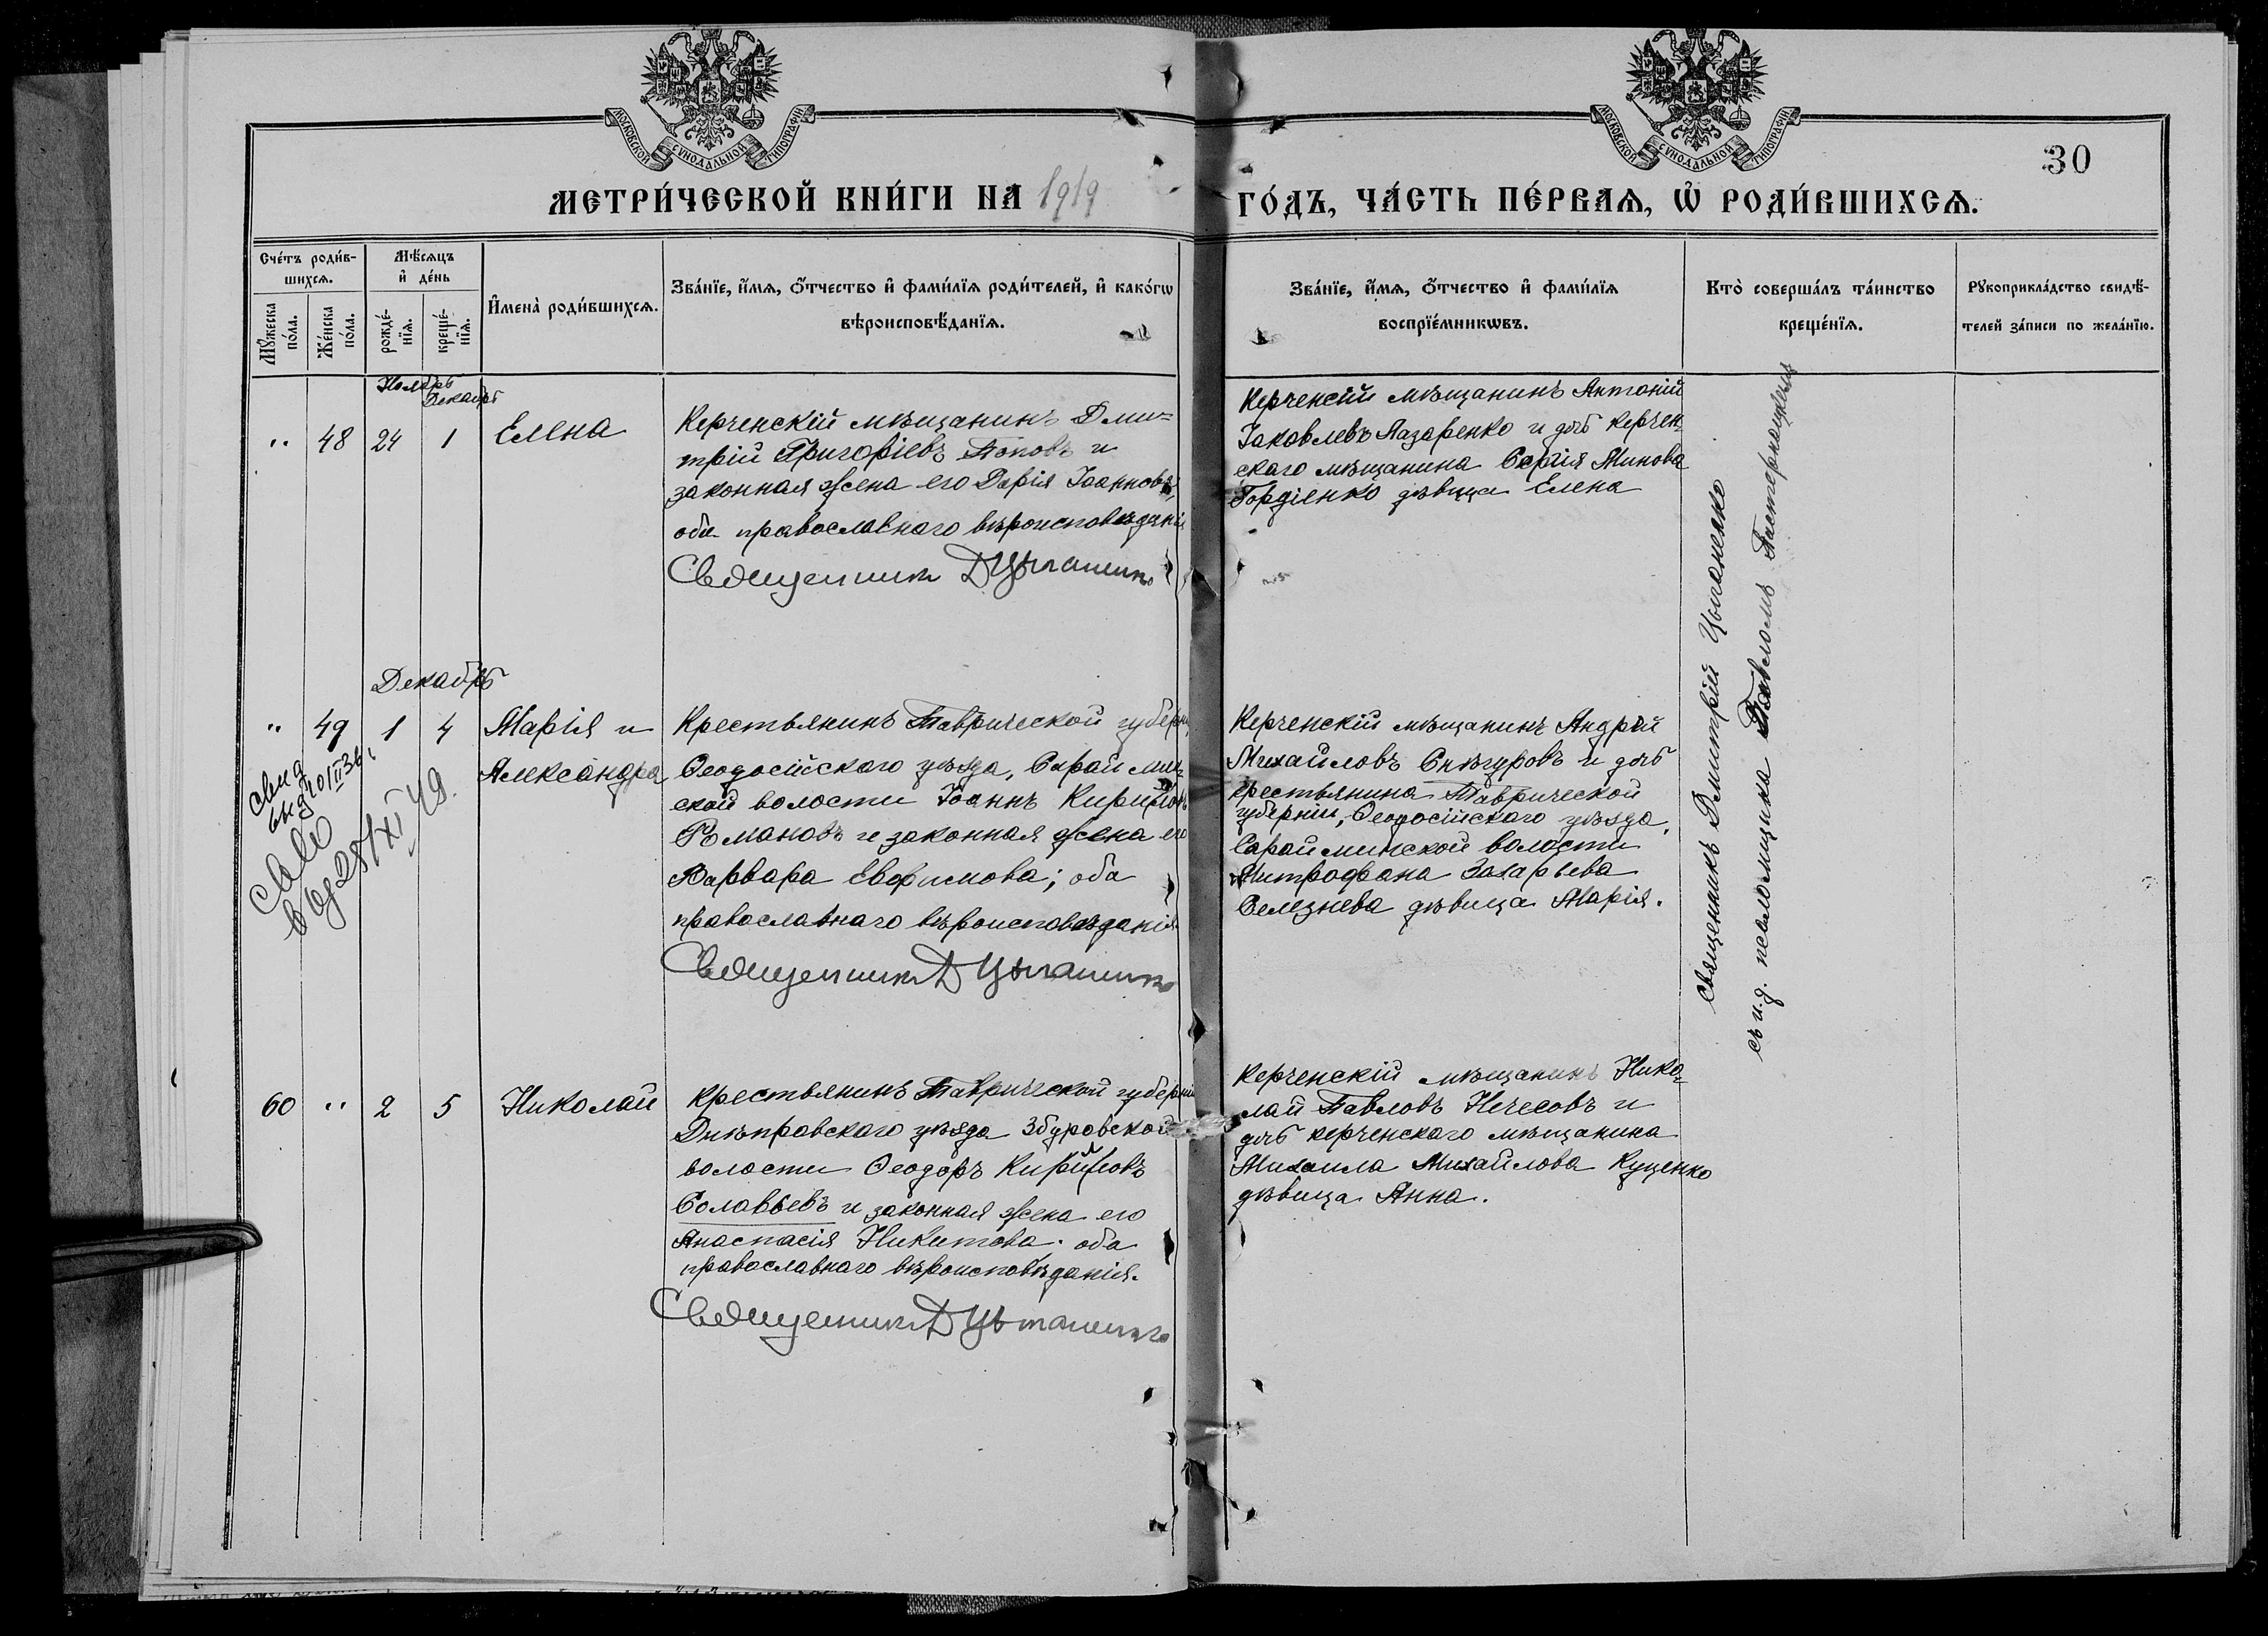 МОСКОВСКОЙ СѴНОДАЛЬНОЙ ТИПОГРАФІИ
МОСКОВСКОЙ СѴНОДАЛЬНОЙ ТИПОГРАФІИ
30
МЕТРИ́ЧЕСКОЙ КНИ́ГИ НА 1919
ГО́ДЪ, ЧА́СТЬ ПЕ́РВАѦ, Ѽ РОДИ́ВШИХСѦ.
Сче́тъ роди́в-
шихсѧ.
Мꙋ́жеска по́ла.
Же́нска по́ла.
Мѣ́сѧцъ
и҆ де́нь
рожде́-
нїѧ.
креще́-
нїѧ.
И҆мена̀ роди́вшихсѧ.
Зва́нїе, и҆́мѧ, ѻ҆́тчество и҆ фами́лїѧ роди́телей, и҆ како́гѡ
вѣроисповѣ́данїѧ.
Зва́нїе, и҆́мѧ, ѻ҆́тчество и҆ фами́лїѧ
воспрїе́мникѡвъ.
Кто̀ соверша́лъ та́инство
креще́нїѧ.
Рꙋкоприкла́дство свидѣ́-
телей за́писи по жела́нїю.
Ноябрь
Декабрь
" 48 24 1 Елена
Керченскій мѣщанинъ Дми=
трій Григоріевъ Поповъ и
законная жена его Дарія Іоаннова,
оба православнаго вѣроисповѣданія
Священникъ Д Цыганенко
Керченскій мѣщанинъ Антоній
Іаковлевъ Лазаренко и дочь керчен
скаго мѣщанина Сергія Минова
Гордіенко дѣвица Елена
Декабрь
" 49 1 4 Марія и
Александра
свид
выд 20/II 36
св-во
выд 28/XI 49.
Крестьянинъ Таврической губерніи
Ѳеодосійскаго уѣзда, Сараймин
ской волости Іоаннъ Кириловъ
Романовъ и законная жена его
Варвара Евфимова; оба
православнаго вѣроисповѣданія
Священникъ Д Цыганенко
Керченскій мѣщанинъ Андрей
Михайловъ Снѣгуровъ и дочь
крестьянина Таврической
губерніи, Ѳеодосійскаго уѣзда,
Сарайминской волости
Митрофана Захарьева
Селезнева дѣвица Марія.
60 " 2 5 Николай
Крестьянинъ Таврической губерніи
Днѣпровскаго уѣзда Збурьевской
волости Ѳеодоръ Кириловъ
Солавьевъ и законная жена его
Анастасія Никитова. оба
православнаго вѣроисповѣданія.
Священникъ Д Цыганенко
Керченскій мѣщанинъ Нико=
лай Павловъ Нечесовъ и
дочь керченскаго мѣщанина
Михаила Михайлова Куценко
дѣвица Анна.
Священникъ Димитрій Цыганенко
съ и.д. псаломщика Павломъ